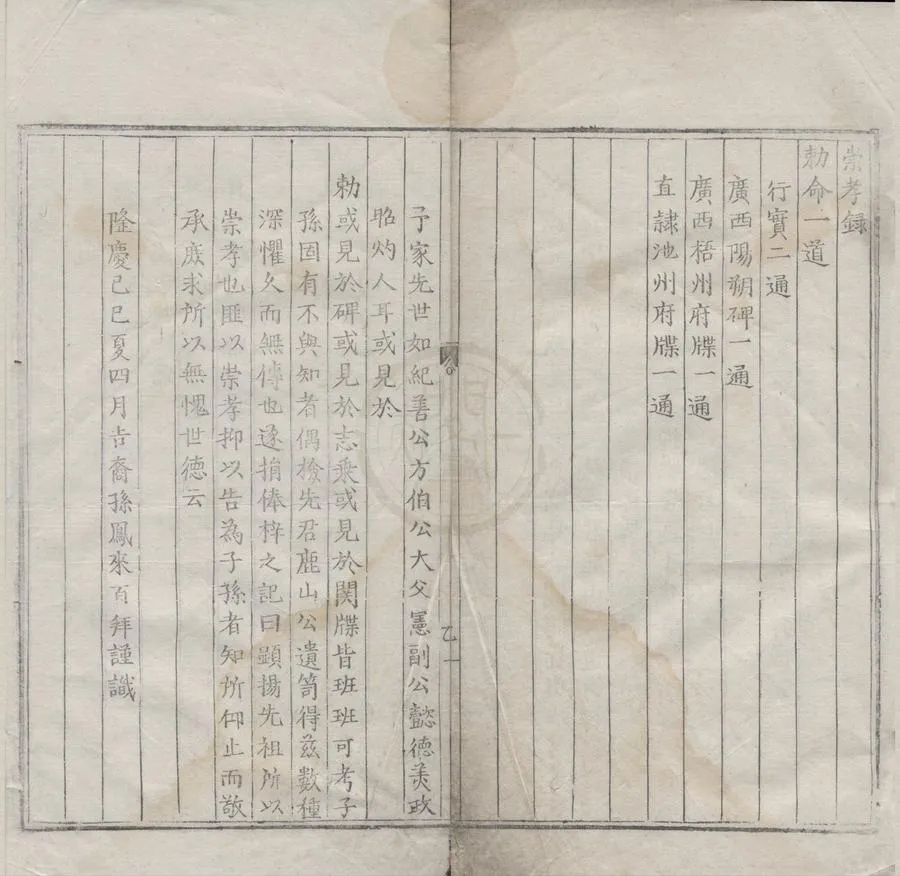 崇孝録
勅命一道
行實二通
廣西陽朔碑一通
廣西梧州府牒一通
直隷池州府牒一通
乙一
予家先世如紀善公方伯公大父憲副公懿德美政
昭灼人耳或見於
勅或見於碑或見於志乘或見於関牒皆班班可考子
孫固有不與知者偶檢先君鹿山公遺笥得茲數種
深懼久而無傳也遂捐俸梓之記曰顯揚先祖所以
崇孝也匪以崇孝抑以告為子孫者知所仰止而敬
承庻求所以無愧世德云
隆慶己巳夏四月吉裔孫鳳來百拜謹識